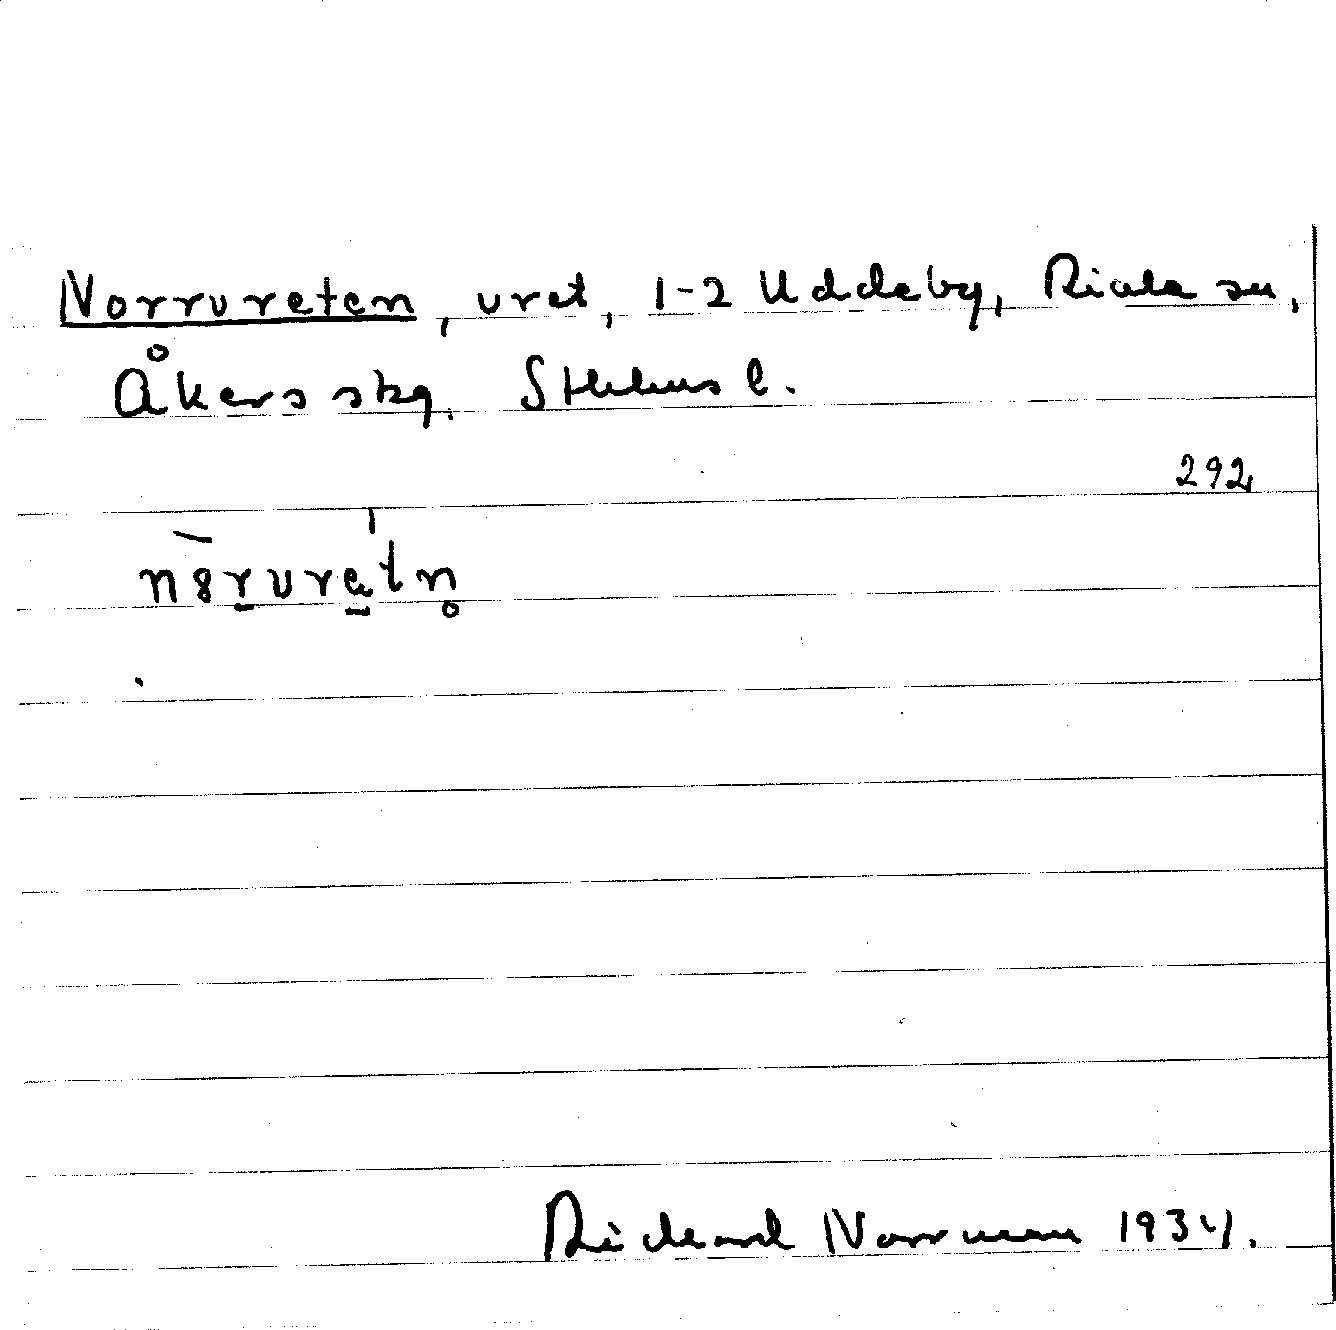 Norrvreten, vret, 1-2 Uddeby, Riala sn,
Åkers skg. Sthlms l.
292
n8rvrетn̥
Rickard Norrman 1934.